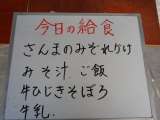 今日の給食
さんまのみぞれかけ
みそ汁、ご飯
牛ひじきそぼろ
牛乳